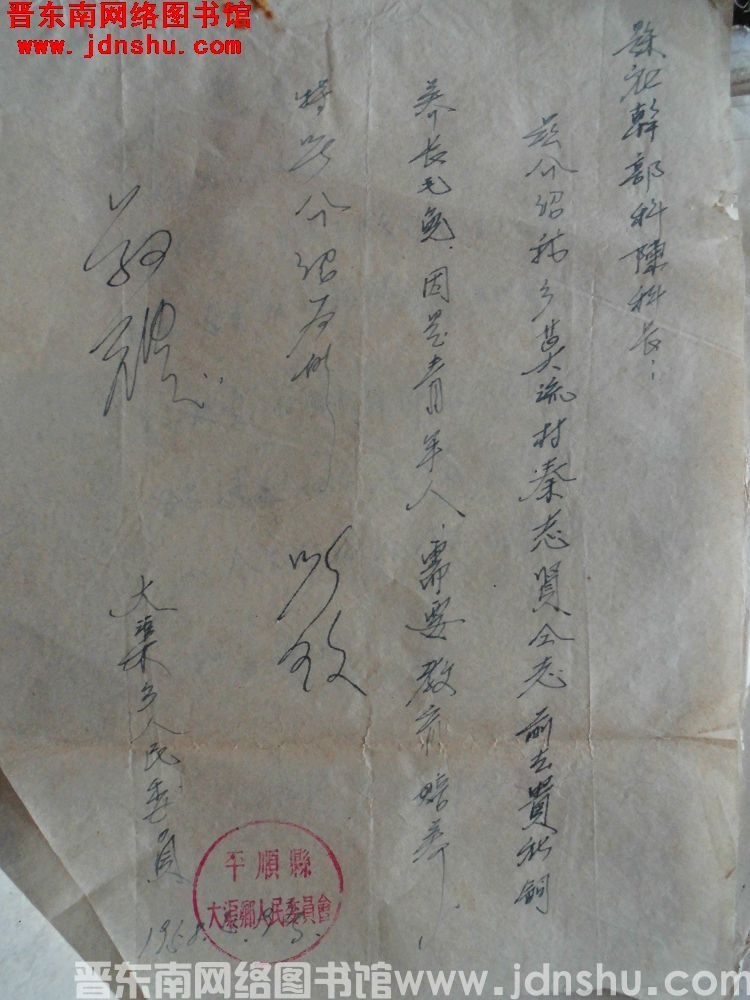 晋东南网络图书馆
www.jdnshu.com
县社幹部科陳科长：
兹介绍我乡莫流村秦志贤仝志前去貴社飼
养长毛兔.因是青年人.需要教育培养.
特此介绍为
此致
敬礼.
大渠乡人民委員
195
平順縣
大渠鄉人民委員會
晋东南网络图书馆www.jdnshu.com